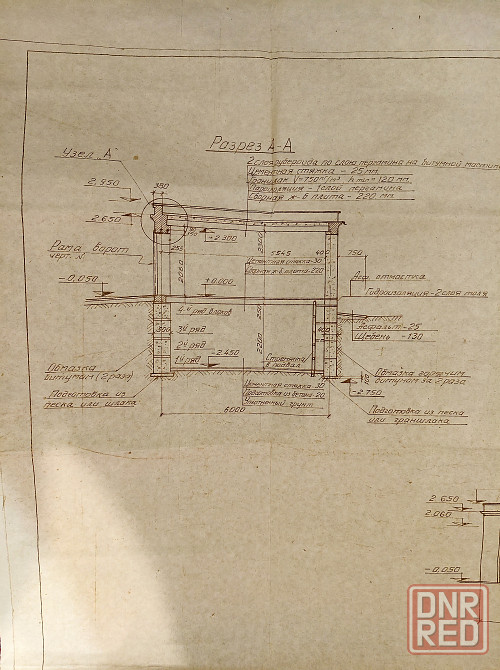 Разрез А-А
Узел „А"
2 слоя рубероида по слою пергамина на битумной мастике
Цементная стяжка - 25 мм
Пароизоляция - 1 слой пергамина
Сборная ж-б плита - 220 мм
2.950
380
2.650
+2.300
Рама ворот
черт. №
250
2060
2300
5545
400
750
Цементная стяжка-30
Сборная ж-б плита-220
-0.050
±0.000
Асф. отмостка
Гидроизоляция-2 слоя толя
4-й ряд блоков
300
3й ряд
2й ряд
1й ряд
-2.450
2200
400
Асфальт-25
Щебень -130
Стремянка
в подвал
Обмазка
битумом (2 раза)
Подготовка из
песка или шлака
Цементная стяжка-30
Подготовка из бетона-20
Уплотненный грунт
6000
Обмазка горячим
битумом за 2 раза
-2.750
Подготовка из песка
или граншлака
2.650
2.060
-0.050
DNR
RED